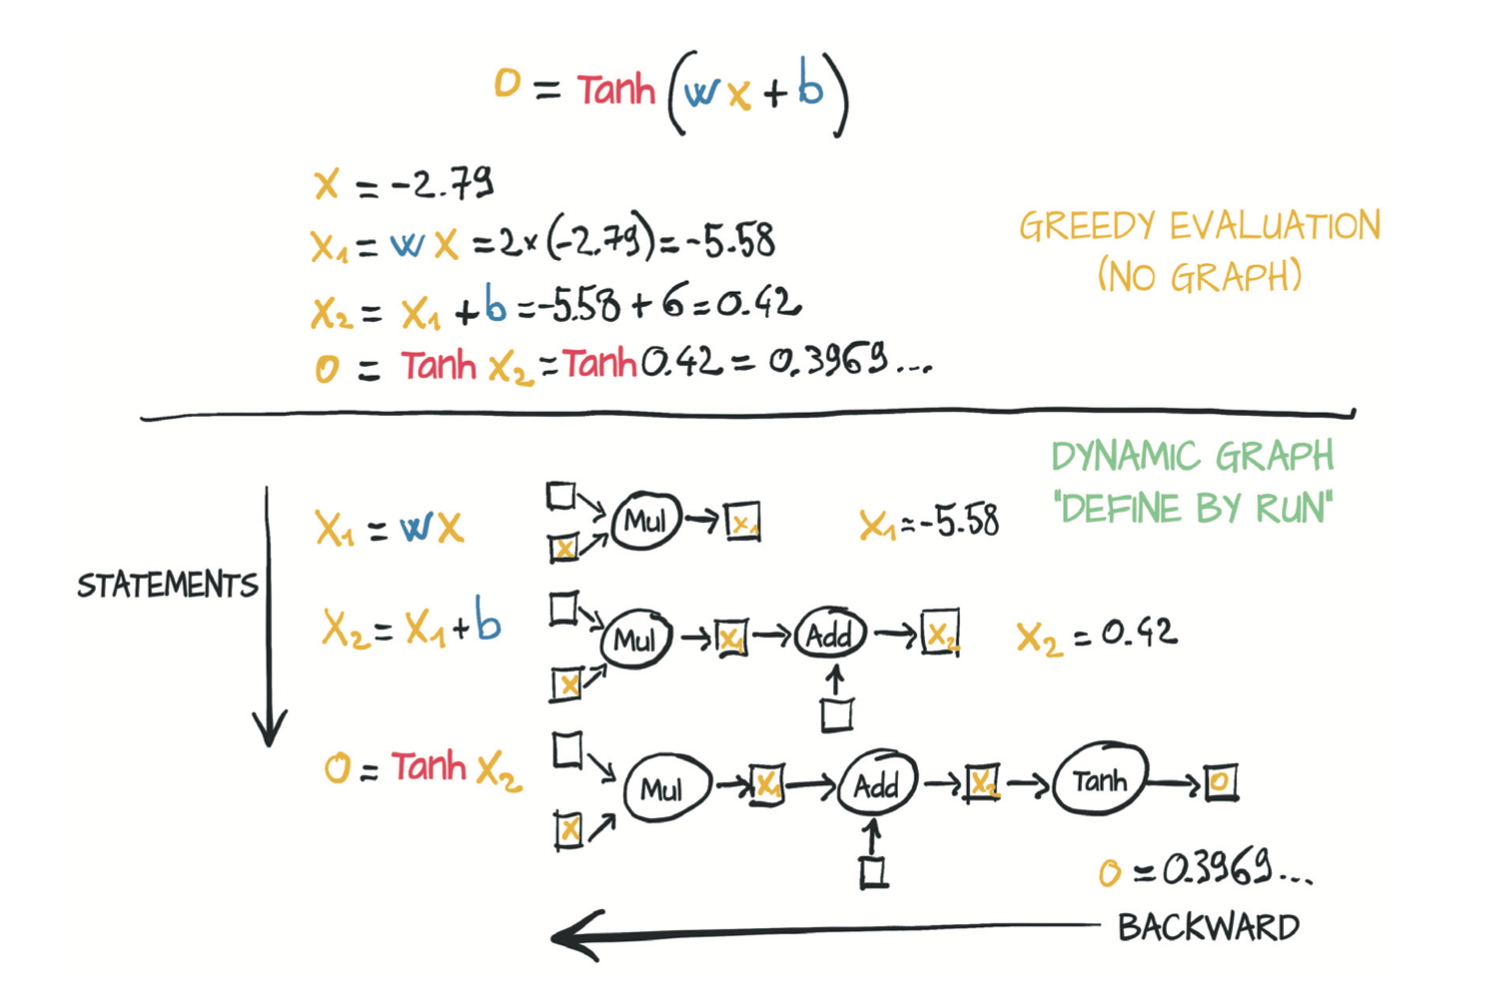 O = Tanh (w x + b)
X = -2.79
X₁ = w X = 2×(-2.79) = -5.58
X₂ = X₁ + b = -5.58 + 6 = 0.42
O = Tanh X₂ = Tanh 0.42 = 0.3969...
GREEDY EVALUATION
(NO GRAPH)
DYNAMIC GRAPH
"DEFINE BY RUN"
STATEMENTS
X₁ = wX
X Mul X₁
X₁ = -5.58
X₂ = X₁ + b
X Mul X₁ Add X₂
X₂ = 0.42
O = Tanh X₂
X Mul X₁ Add X₂ Tanh O
O = 0.3969...
BACKWARD